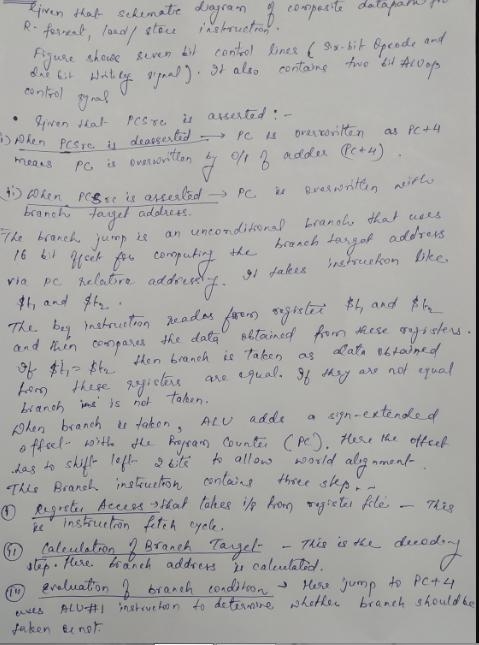 Given that schematic diagram of composite datapath for
R-format, load/store instruction.
Figure shows seven bit control lines (six-bit Opcode and
one bit signal). It also contains two bit ALUop
control signal
• Given that PCSrc is asserted :-
i) When PCSrc is deasserted → PC is overwritten as PC+4
means PC is overwritten by o/p of adder (PC+4).
ii) When PCSrc is asserted → PC is overwritten with
branch target address.
The branch jump is an unconditional branch that uses
16 bit offset for computing the branch target address
via PC relative addressing. It takes instruction like
$t1 and $t2.
The beq instruction reads from register $t1 and $t2
and then compares the data obtained from these registers.
If $t1 = $t2 then branch is taken as data obtained
from these registers are equal. If they are not equal
branch is not taken.
When branch is taken, ALU adds a sign-extended
offset with the Program Counter (PC). Here the offset
has to shift left 2 bits to allow world alignment.
This Branch instruction contains three step. -
(i) Register Access → that takes i/p from register file - This
is instruction fetch cycle.
(ii) Calculation of Branch Target - This is the decoding
step. Here branch address is calculated.
(iii) Evaluation of branch condition → Here jump to PC+4
uses ALU#1 instruction to determine whether branch should be
taken or not.